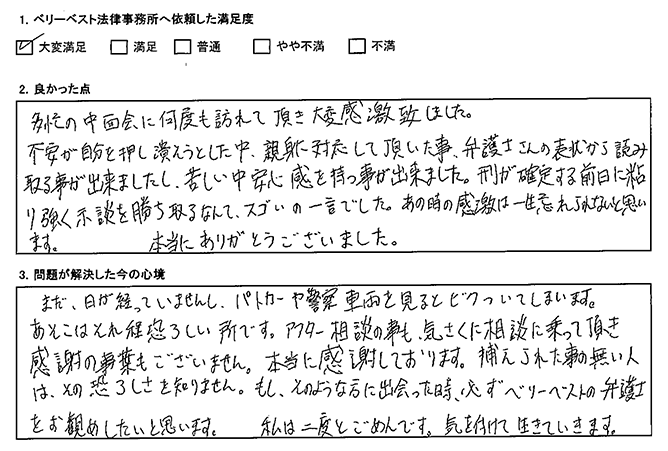 1. ベリーベスト法律事務所へ依頼した満足度
大変満足 満足 普通 やや不満 不満
2. 良かった点
多忙の中面会に何度も訪れて頂き大変感激致しました。
不安が自分を押し潰そうとした中、親身に対応して頂いた事、弁護士さんの表状から読み
取る事が出来ましたし、苦しい中安心感を持つ事が出来ました。刑が確定する前日に粘
り強く示談を勝ち取るなんて、スゴいの一言でした。あの時の感激は一生忘れられないと思い
ます。 本当にありがとうございました。
3. 問題が解決した今の心境
まだ、日が経っていませんし、パトカーや警察車両を見るとビクついてしまいます。
あそこはそれ程恐ろしい所です。アフター相談の事も、気さくに相談に乗って頂き
感謝の事葉もございません。本当に感謝しております。捕えられた事の無い人
は、その恐ろしさを知りません。もし、そのような方に出会った時、必ずベリーベストの弁護士
をお観めしたいと思います。 私は二度とごめんです。気を付けて生きていきます。